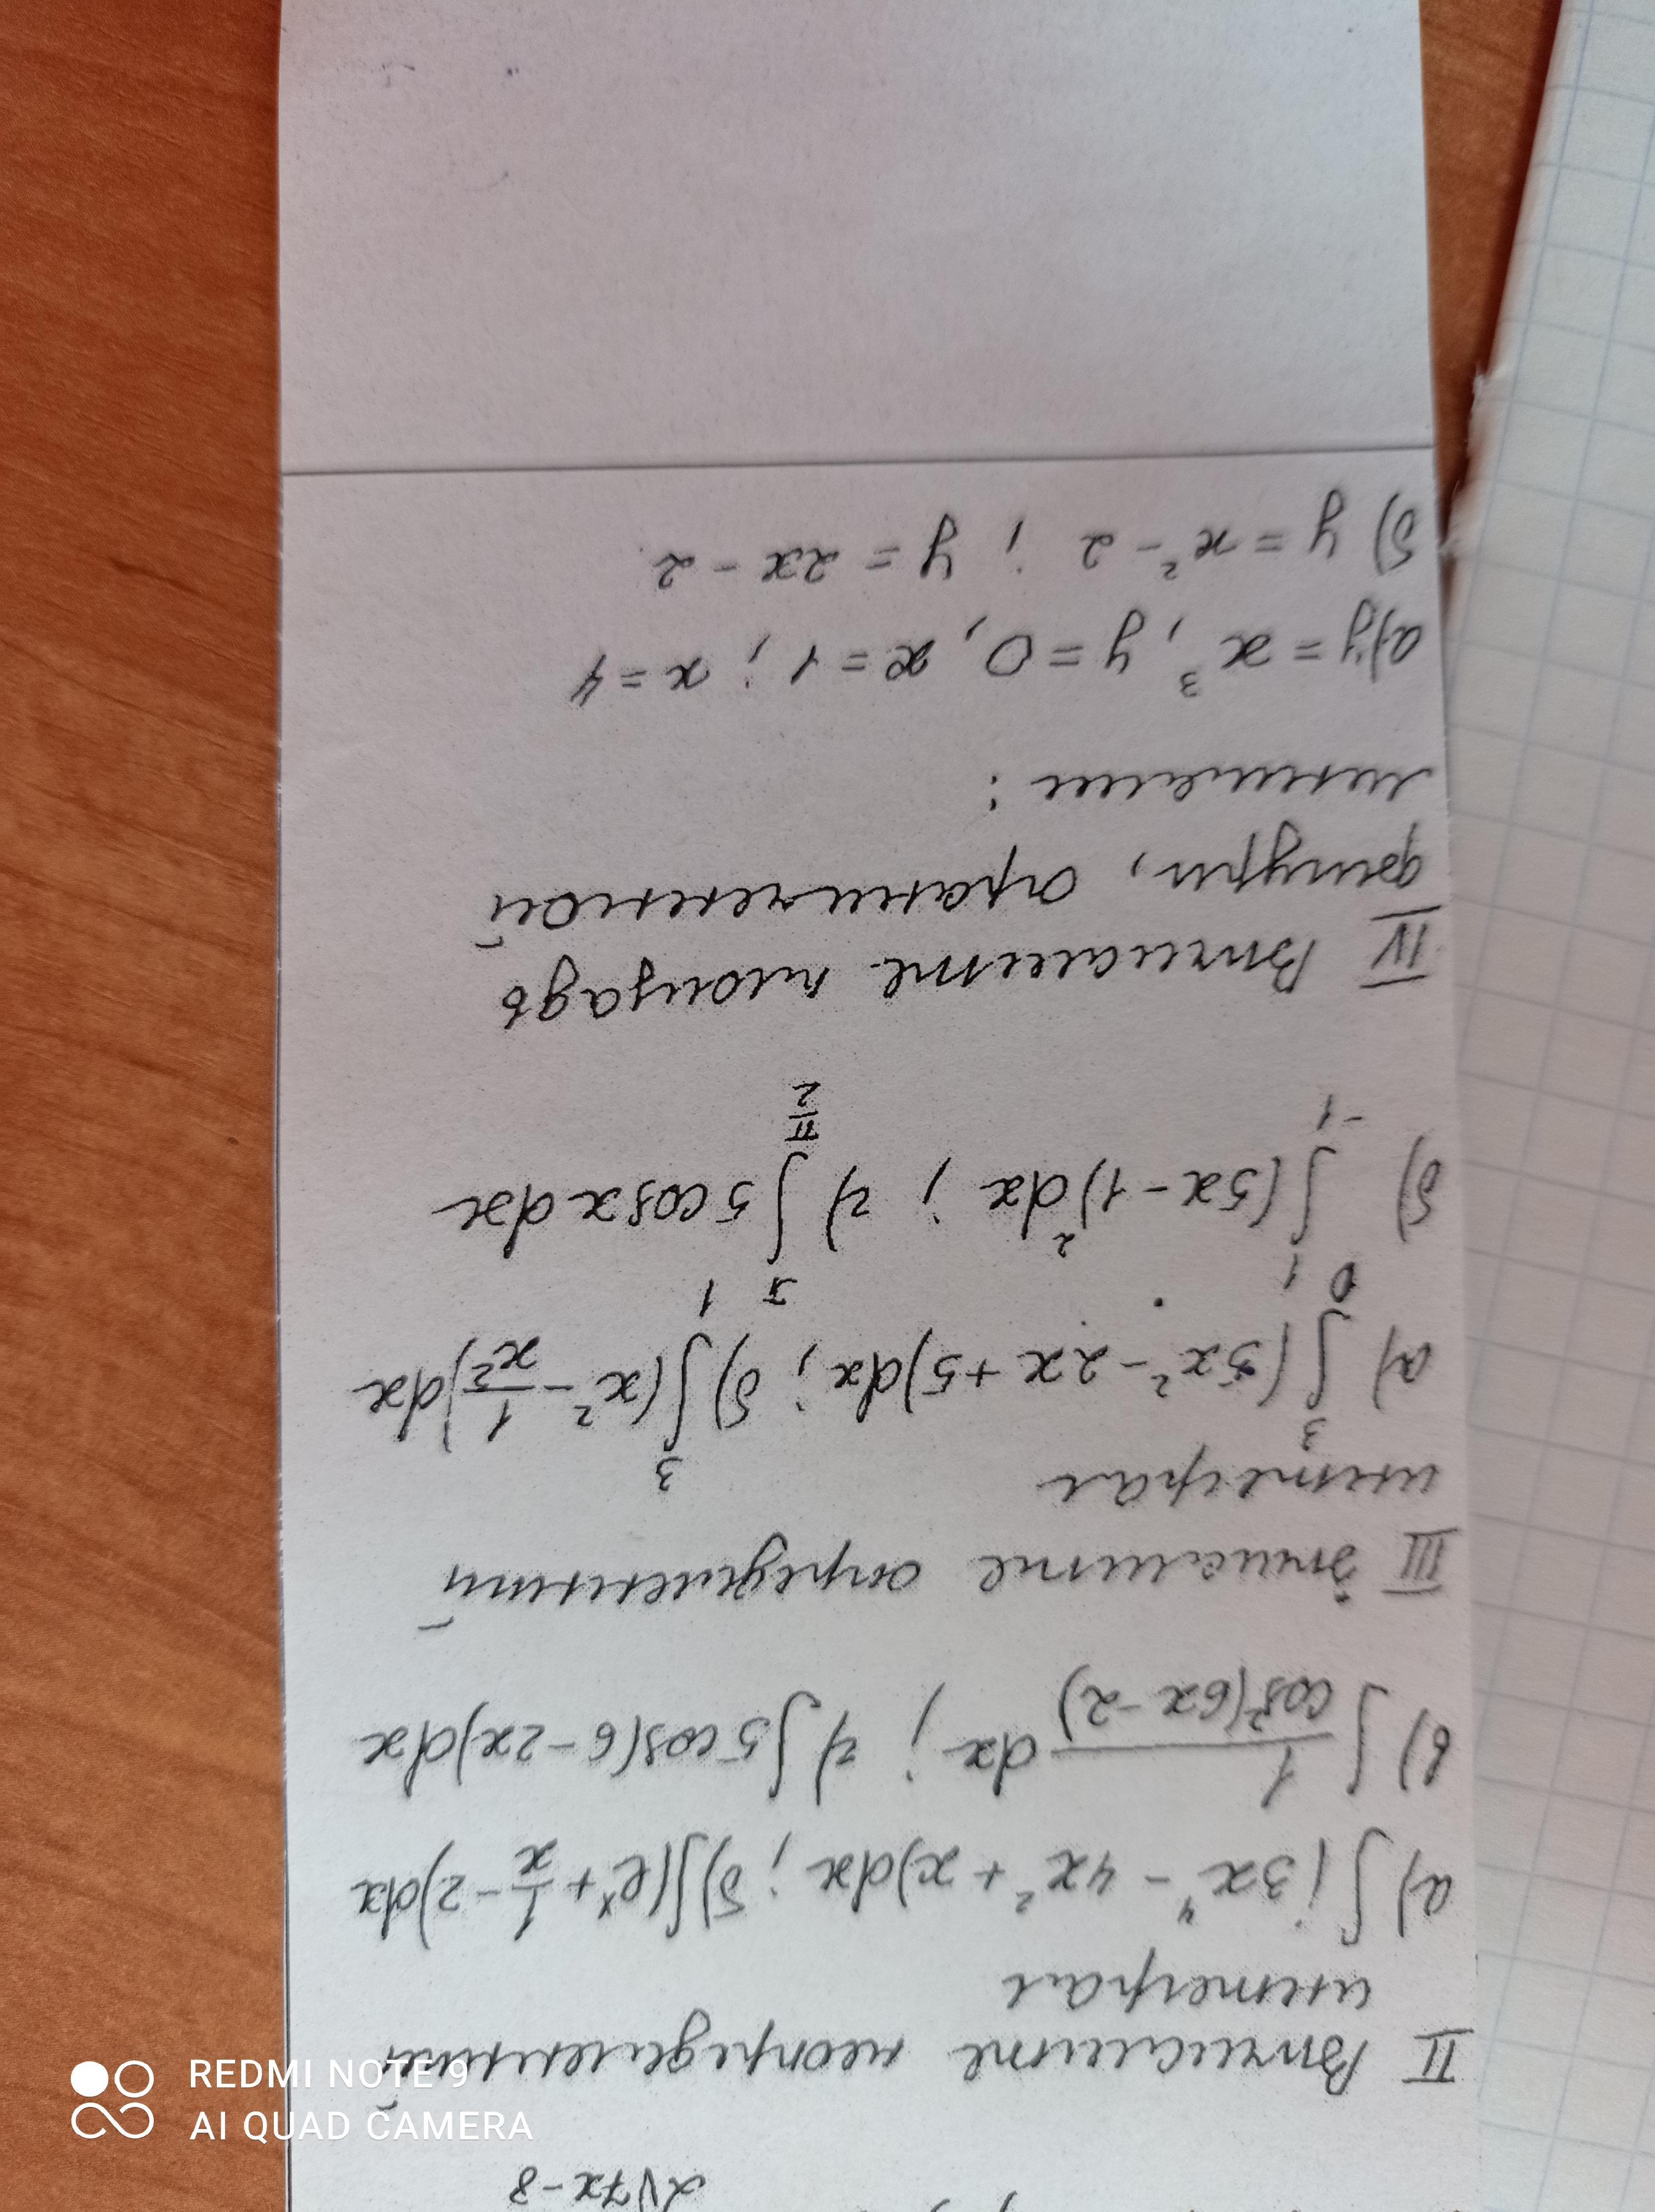 2√7x-8
II Вычислите неопределенный
интеграл
а) ∫(3x⁴ - 4x² + x)dx; б) ∫(eˣ + 1/x - 2)dx
в) ∫ 1/cos²(6x-2) dx; г) ∫5cos(6-2x)dx
III Вычислите определенный
интеграл
а) ∫₀³(3x² - 2x + 5)dx; б) ∫₁³(x² - 1/x²)dx
б) ∫₋₁¹(5x-1)²dx; г) ∫_{π/2}^{π} 5cosx dx
IV Вычислите площадь
фигуры, ограниченной
линиями:
а) y = x³, y = 0, x = 1; x = 4
б) y = x² - 2; y = 2x - 2
REDMI NOTE 9
AI QUAD CAMERA